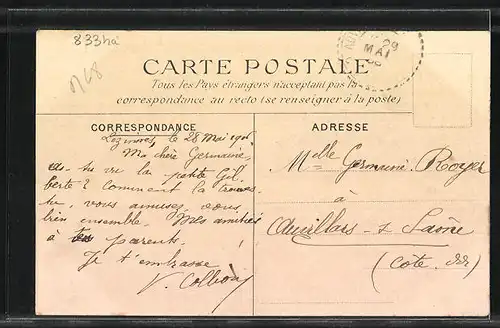 833ha
CARTE POSTALE
29
MAI
Tous les Pays étrangers n'acceptant pas la
correspondance au recto (se renseigner à la poste)
CORRESPONDANCE
ADRESSE
le 28 Mai
Ma chère Germaine,
as-tu vu la petite Gil
berte? Comment la trouves
tu, vous amusez vous
bien ensemble. Mes amitiés
à tes parents.
Je t'embrasse
V.
Melle Germaine Royer
à
Auvillars s Saône
(Côte d'Or)